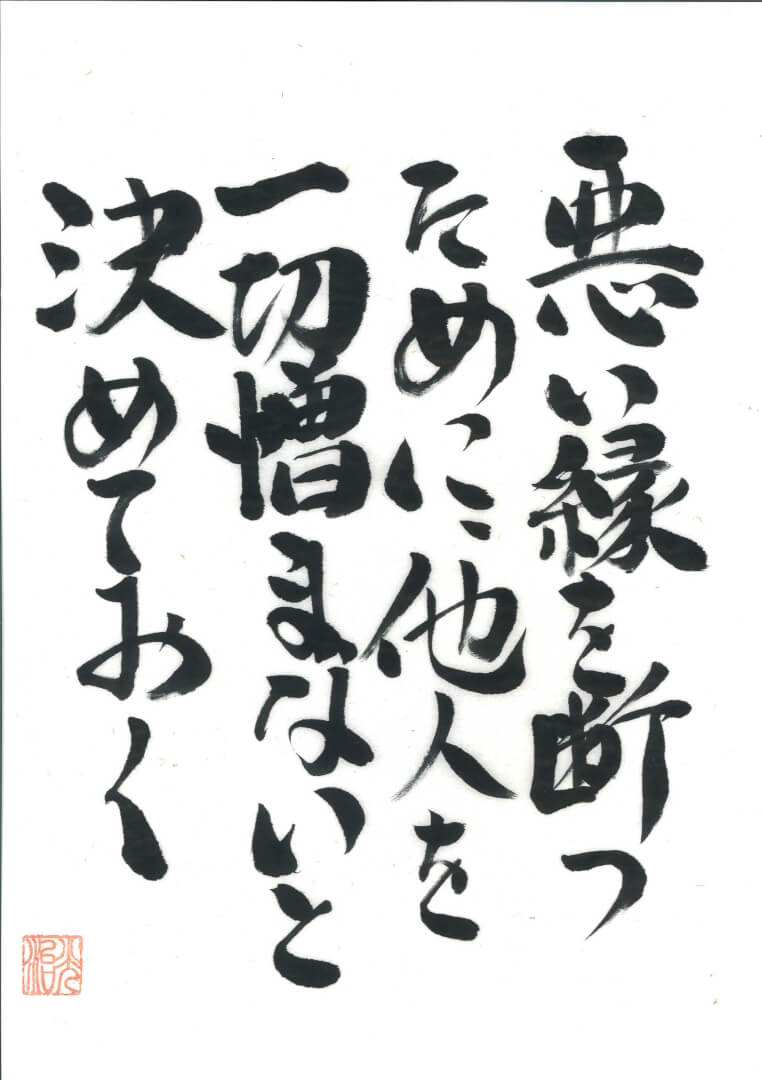 悪い縁を断つ
ために他人を
一切憎まないと
決めておく